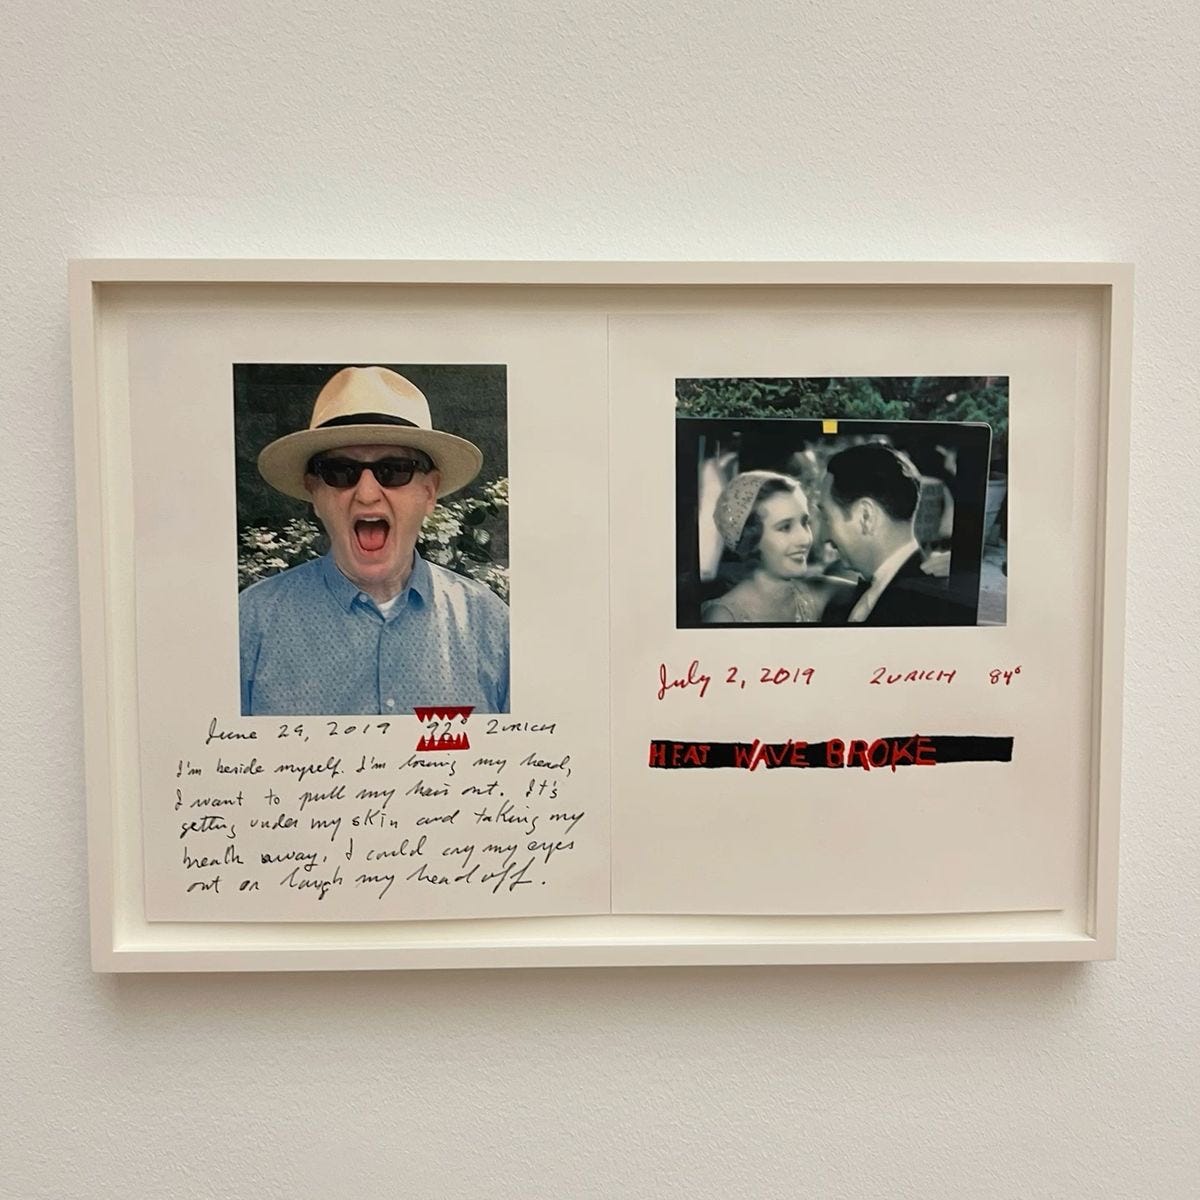 June 29, 2019 92° ZURICH
I'm beside myself. I'm losing my head,
I want to pull my hair out. It's
getting under my skin and taking my
breath away, I could cry my eyes
out or laugh my head off.
July 2, 2019 ZURICH 84°
HEAT WAVE BROKE